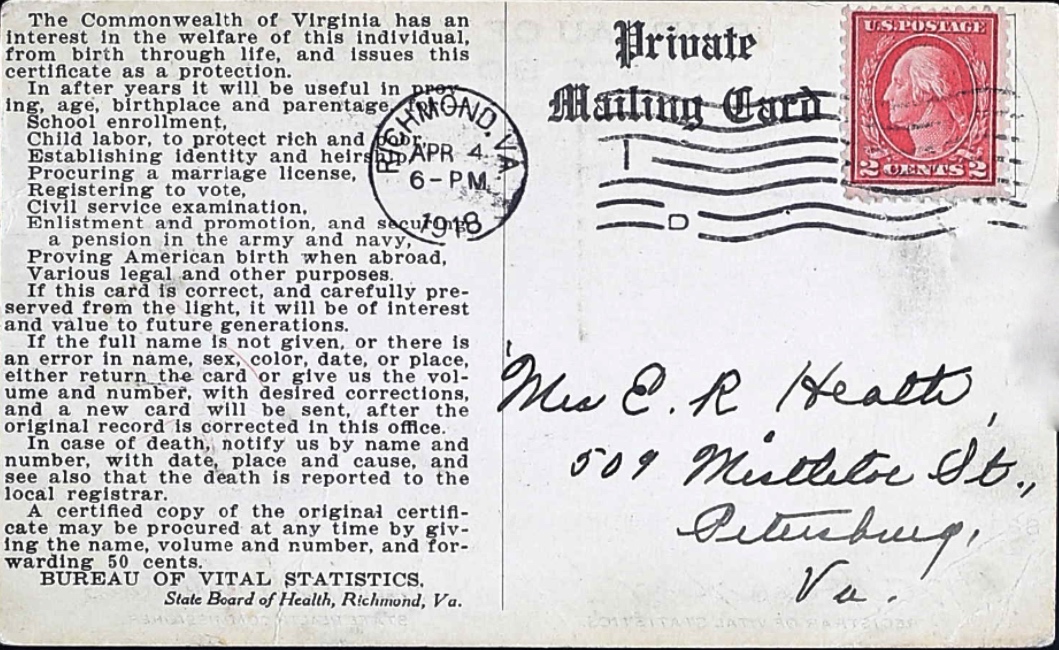 The Commonwealth of Virginia has an
interest in the welfare of this individual,
from birth through life, and issues this
certificate as a protection.
In after years it will be useful in prov-
ing, age, birthplace and parentage, for
School enrollment,
Child labor, to protect rich and poor,
Establishing identity and heirship,
Procuring a marriage license,
Registering to vote,
Civil service examination,
Enlistment and promotion, and securing
a pension in the army and navy,
Proving American birth when abroad,
Various legal and other purposes.
If this card is correct, and carefully pre-
served from the light, it will be of interest
and value to future generations.
If the full name is not given, or there is
an error in name, sex, color, date, or place,
either return the card or give us the vol-
ume and number, with desired corrections,
and a new card will be sent, after the
original record is corrected in this office.
In case of death, notify us by name and
number, with date, place and cause, and
see also that the death is reported to the
local registrar.
A certified copy of the original certifi-
cate may be procured at any time by giv-
ing the name, volume and number, and for-
warding 50 cents.
BUREAU OF VITAL STATISTICS.
State Board of Health, Richmond, Va.
RICHMOND. VA
APR 4
6-PM
1918
Private
Mailing Card
U.S. POSTAGE
2 CENTS 2
D
Mrs E. R Heath,
509 Mistletoe St.,
Petersburg,
Va.